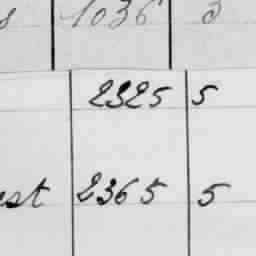 1036 3
2325 5
est 2365 5